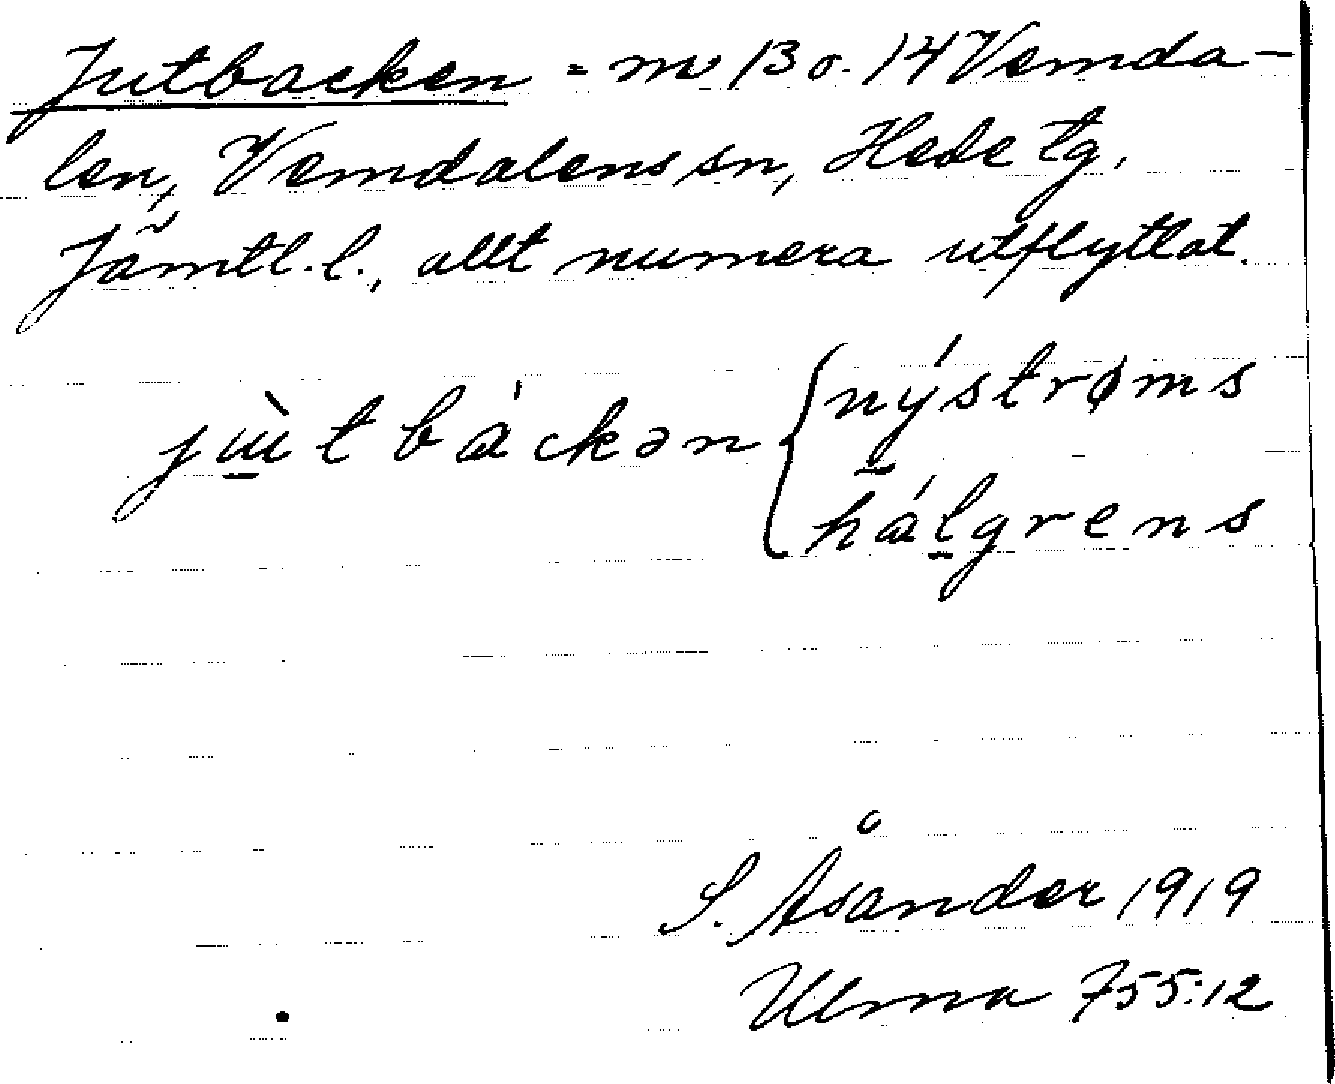 Jutbacken = nr 13 o. 14 Vemda-
len, Vemdalens sn, Hede tg,
Jämtl. l., allt numera utflyttat.
jùtbáckən { nýstrøms
hálgrens
S. Åsander 1919
Ulma 755:12